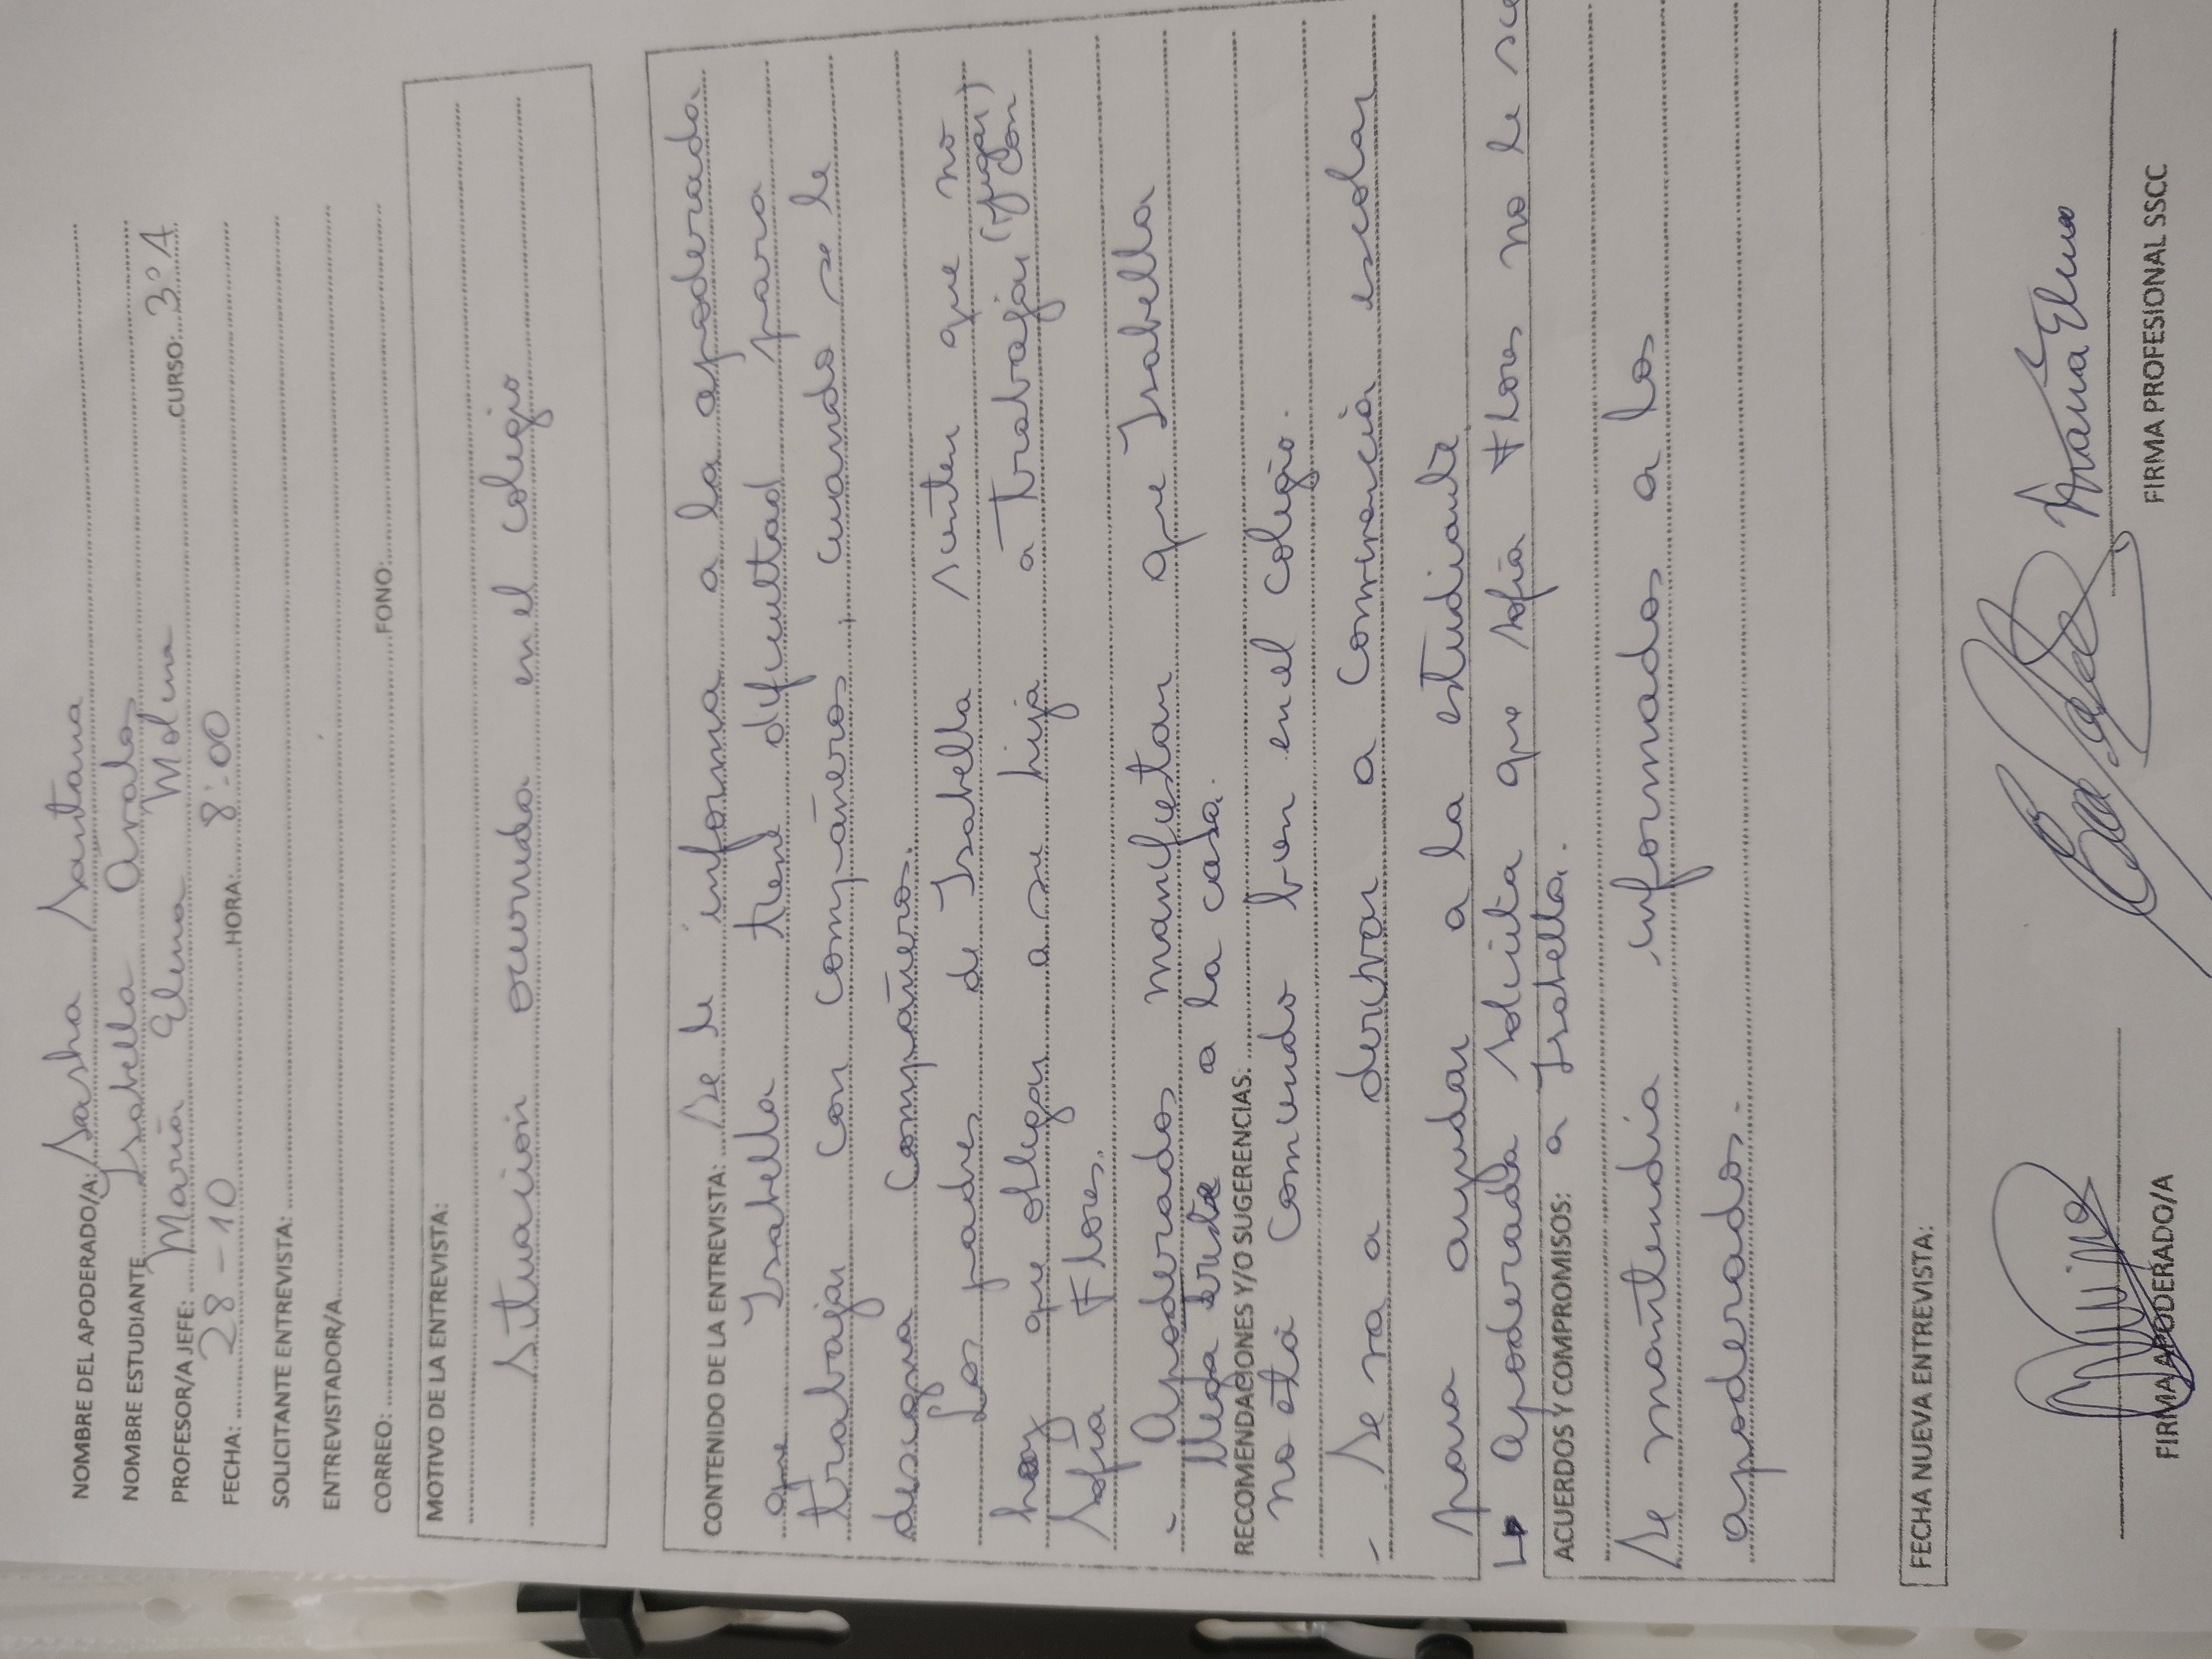 NOMBRE DEL APODERADO/A: Sasha Santana
NOMBRE ESTUDIANTE Isabella Arvalos
PROFESOR/A JEFE: María Elena Molina CURSO: 3°A
FECHA: 28-10 HORA: 8:00
SOLICITANTE ENTREVISTA:
ENTREVISTADOR/A
CORREO: FONO:
MOTIVO DE LA ENTREVISTA:
Situación ocurrida en el colegio
CONTENIDO DE LA ENTREVISTA: Se le informa a la apoderada
que Isabella tiene dificultad para
trabajar con compañeros, cuando se le
designa compañeros.
Los padres de Isabella sienten que no
hay que obligar a su hija a trabajar (jugar) con
Sofía Flores.
- Apoderados manifiestan que Isabella
llega triste a la casa.
RECOMENDACIONES Y/O SUGERENCIAS:
no está comiendo bien en el colegio.
- Se va a derivar a convivencia escolar
para ayudar a la estudiante
Apoderada solicita que Sofía Flores no se
a Isabella.
ACUERDOS Y COMPROMISOS:
Se mantendrá informados a los
apoderados.
FECHA NUEVA ENTREVISTA:
María Elena
FIRMA APODERADO/A
FIRMA PROFESIONAL SSCC